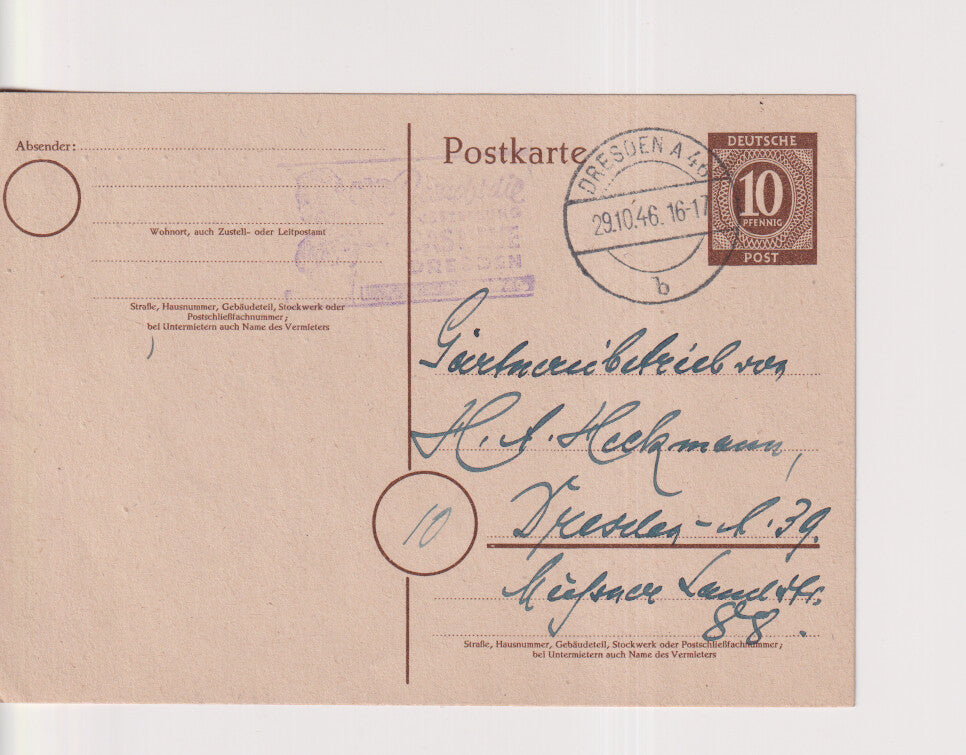 Absender:
Wohnort, auch Zustell- oder Leitpostamt
Straße, Hausnummer, Gebäudeteil, Stockwerk oder
Postschließfachnummer;
bei Untermietern auch Name des Vermieters
Postkarte
DRESDEN A 46
29.10.46. 16-17
b
DEUTSCHE
10
PFENNIG
POST
DRESDEN
Gärtnereibetrieb von
H. A. Heckmann,
10
Dresden-A. 39.
Meißner Landstr.
88.
Straße, Hausnummer, Gebäudeteil, Stockwerk oder Postschließfachnummer;
bei Untermietern auch Name des Vermieters